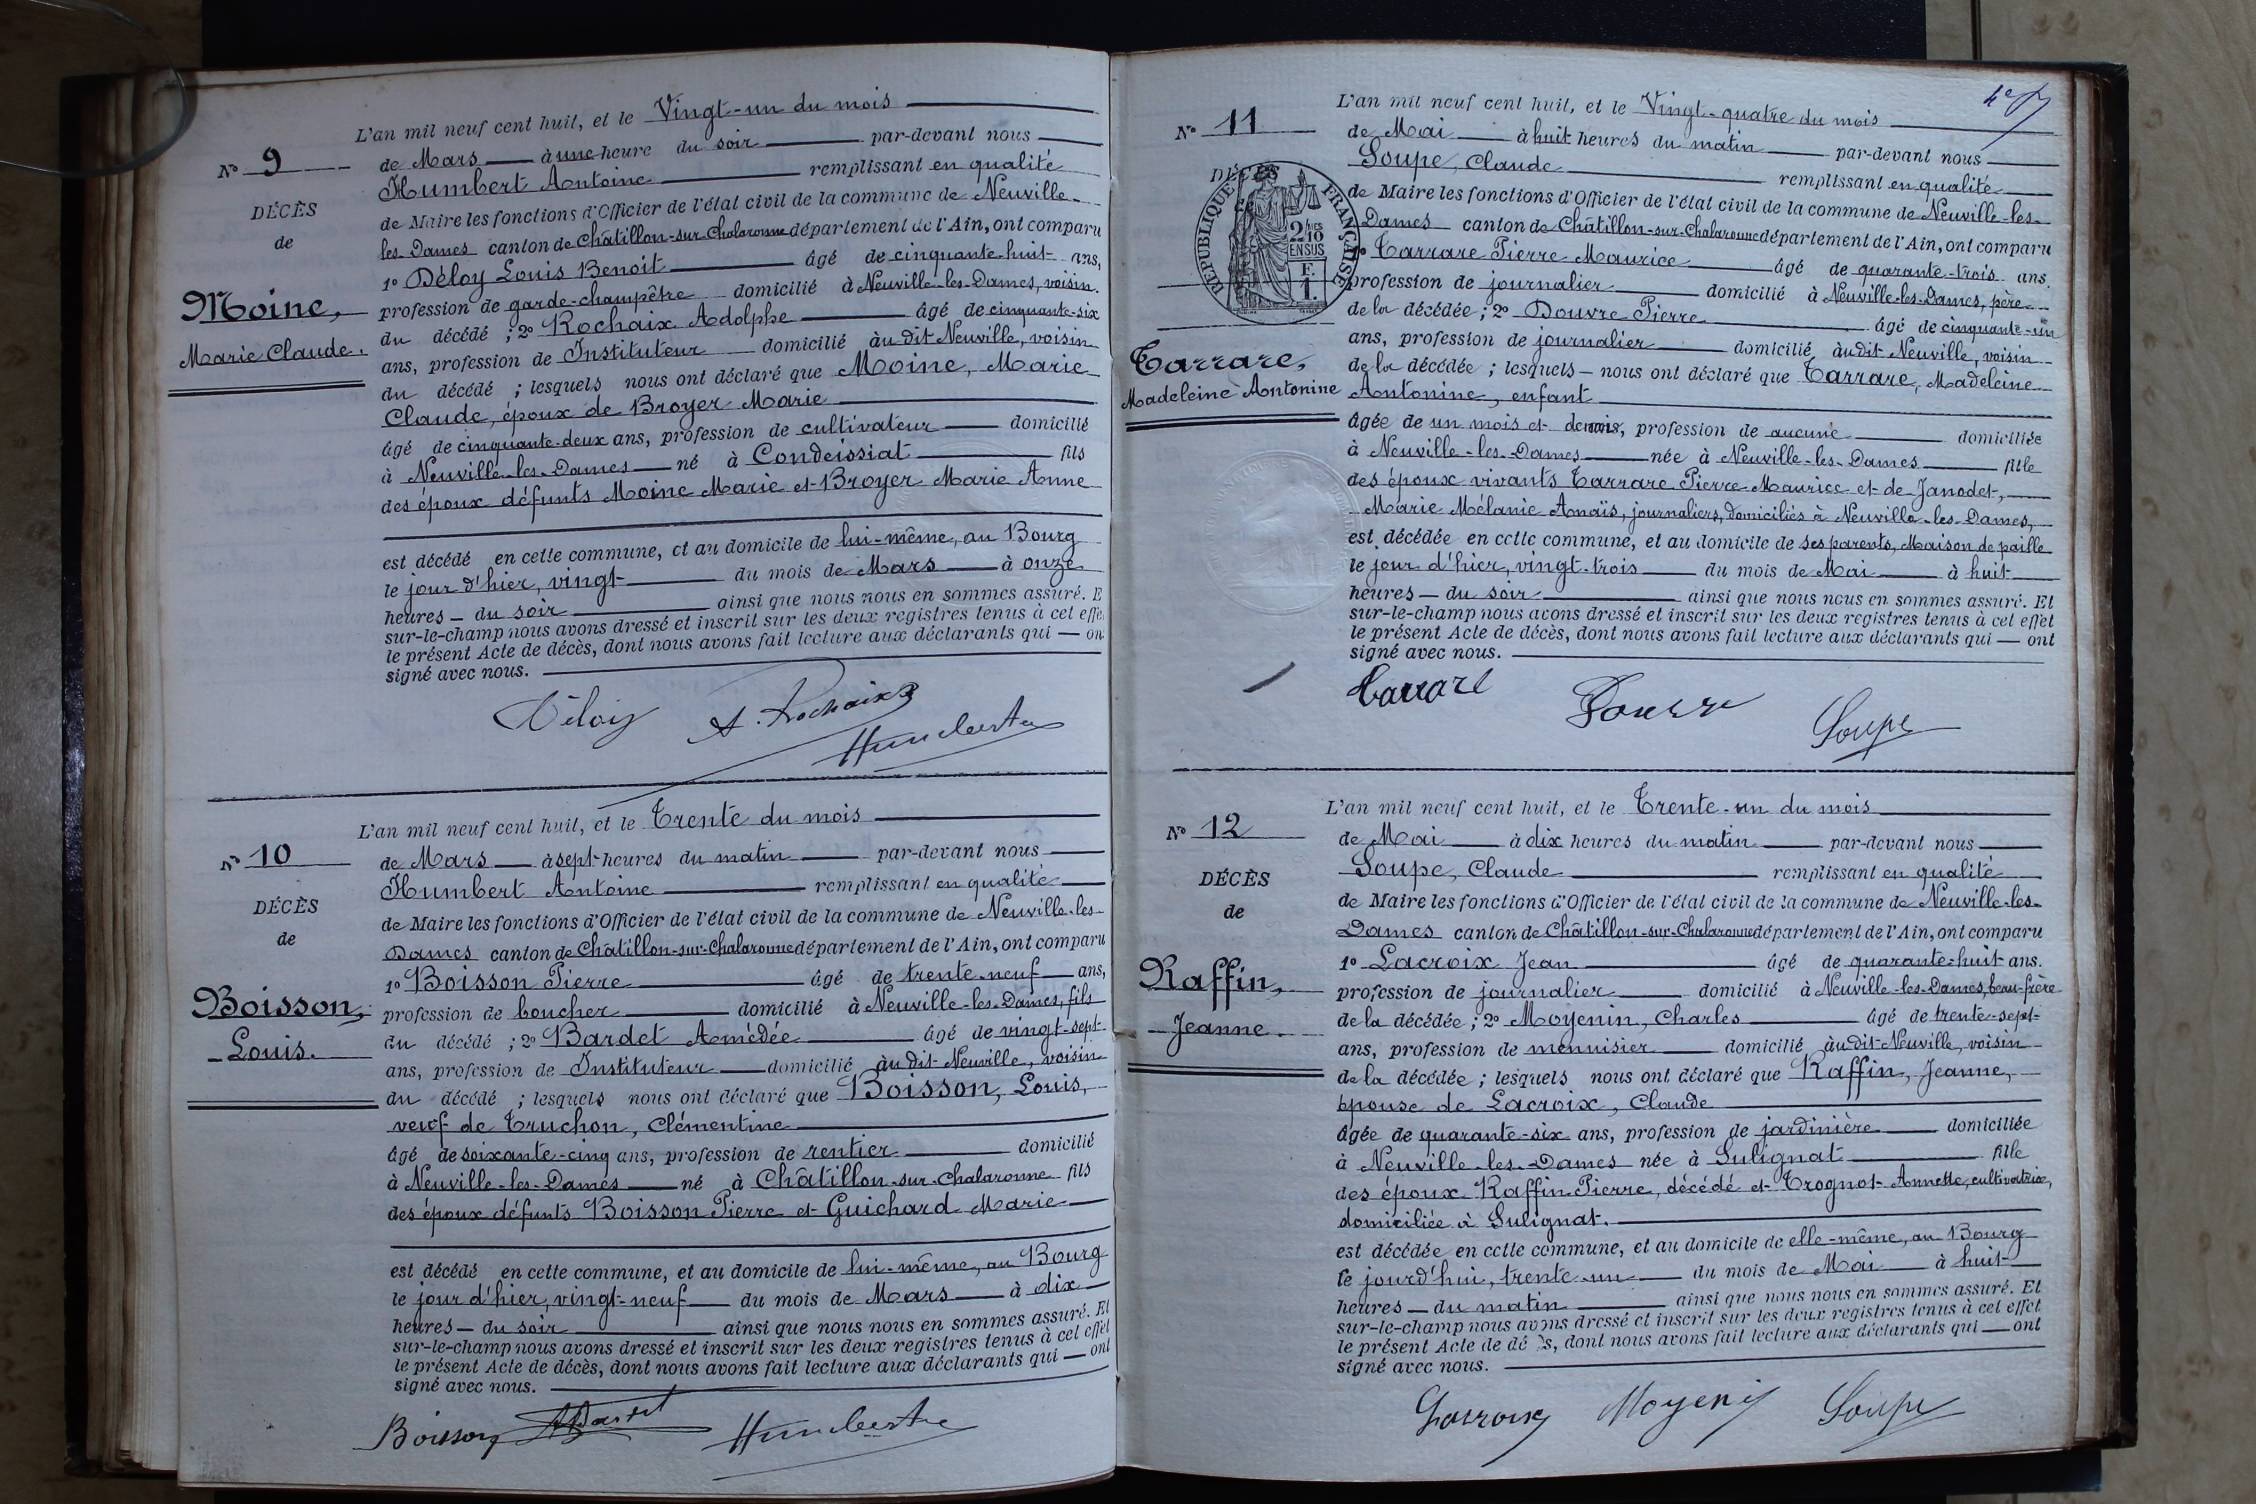 L'an mil neuf cent huit, et le Vingt-un du mois
Nº 9
de Mars à une heure du soir par-devant nous
Humbert Antoine remplissant en qualité
DÉCÈS
de Maire les fonctions d'Officier de l'état civil de la commune de Neuville-
de
les-Dames canton de Châtillon-sur-Chalaronne département de l'Ain, ont comparu
1º Déloy Louis Benoit âgé de cinquante-huit ans,
Moine,
profession de garde-champêtre domicilié à Neuville-les-Dames, voisin
du décédé ; 2º Rochaix Adolphe âgé de cinquante-six
Marie Claude.
ans, profession de Instituteur domicilié àudit Neuville, voisin
du décédé ; lesquels nous ont déclaré que Moine, Marie
Claude, époux de Broyer Marie
âgé de cinquante-deux ans, profession de cultivateur domicilié
à Neuville-les-Dames né à Condeissiat fils
des époux défunts Moine Marie et Broyer Marie Anne
est décédé en cette commune, et au domicile de lui-même, au Bourg
le jour d'hier, vingt du mois de Mars à onze
heures du soir ainsi que nous nous en sommes assuré. E
sur-le-champ nous avons dressé et inscrit sur les deux registres tenus à cet effe
le présent Acte de décès, dont nous avons fait lecture aux déclarants qui — on
signé avec nous.
Déloy A. Rochaix Humbert
L'an mil neuf cent huit, et le Trente du mois
Nº 10
de Mars à sept heures du matin par-devant nous
Humbert Antoine remplissant en qualité
DÉCÈS
de Maire les fonctions d'Officier de l'état civil de la commune de Neuville-les-
de
Dames canton de Châtillon-sur-Chalaronne département de l'Ain, ont comparu
1º Boisson Pierre âgé de trente-neuf ans,
Boisson,
profession de boucher domicilié à Neuville-les-Dames, fils
du décédé ; 2º Bardet Amédée âgé de vingt-sept
Louis.
ans, profession de Instituteur domicilié àudit Neuville, voisin
du décédé ; lesquels nous ont déclaré que Boisson, Louis,
veuf de Truchon, Clémentine
âgé de soixante-cinq ans, profession de rentier domicilié
à Neuville-les-Dames né à Châtillon-sur-Chalaronne fils
des époux défunts Boisson Pierre et Guichard Marie
est décédé en cette commune, et au domicile de lui-même, au Bourg
le jour d'hier, vingt-neuf du mois de Mars à dix
heures du soir ainsi que nous nous en sommes assuré. Et
sur-le-champ nous avons dressé et inscrit sur les deux registres tenus à cet effet
le présent Acte de décès, dont nous avons fait lecture aux déclarants qui — ont
signé avec nous.
Boisson ABardet Humbert
L'an mil neuf cent huit, et le Vingt-quatre du mois
Nº 11
de Mai à huit heures du matin par-devant nous
Soupe, Claude remplissant en qualité
DÉCÈS
RÉPUBLIQUE FRANÇAISE
2/10 EN SUS
F. 1.
de Maire les fonctions d'Officier de l'état civil de la commune de Neuville-les-
Dames canton de Châtillon-sur-Chalaronne département de l'Ain, ont comparu
Carrare Pierre Maurice âgé de quarante-trois ans.
profession de journalier domicilié à Neuville-les-Dames, père
de la décédée ; 2º Douvre Pierre âgé de cinquante-un
ans, profession de journalier domicilié àudit Neuville, voisin
Carrare,
de la décédée ; lesquels — nous ont déclaré que Carrare, Madeleine
Madeleine Antonine
Antonine, enfant
âgée de un mois et demi, profession de aucune domiciliée
à Neuville-les-Dames née à Neuville-les-Dames fille
des époux vivants Carrare Pierre Maurice et de Janodet,
Marie Mélanie Anaïs, journaliers, domiciliés à Neuville-les-Dames,
est décédée en cette commune, et au domicile de ses parents, Maison de paille
le jour d'hier, vingt-trois du mois de Mai à huit
heures — du soir ainsi que nous nous en sommes assuré. Et
sur-le-champ nous avons dressé et inscrit sur les deux registres tenus à cet effet
le présent Acte de décès, dont nous avons fait lecture aux déclarants qui — ont
signé avec nous.
Carrare Douvre Soupe
L'an mil neuf cent huit, et le Trente-un du mois
Nº 12
de Mai à dix heures du matin par-devant nous
Soupe, Claude remplissant en qualité
DÉCÈS
de Maire les fonctions d'Officier de l'état civil de la commune de Neuville-les-
de
Dames canton de Châtillon-sur-Chalaronne département de l'Ain, ont comparu
1º Lacroix Jean âgé de quarante-huit ans.
Raffin,
profession de journalier domicilié à Neuville-les-Dames, beau-frère
de la décédée ; 2º Moyenin, Charles âgé de trente-sept
Jeanne.
ans, profession de menuisier domicilié àudit Neuville, voisin
de la décédée ; lesquels nous ont déclaré que Raffin, Jeanne,
épouse de Lacroix, Claude
âgée de quarante-six ans, profession de jardinière domiciliée
à Neuville-les-Dames née à Sulignat fille
des époux Raffin Pierre, décédé et Trognot Annette, cultivatrice,
domiciliée à Sulignat.
est décédée en cette commune, et au domicile de elle-même, au Bourg
le jourd'hui, trente-un du mois de Mai à huit
heures — du matin ainsi que nous nous en sommes assuré. Et
sur-le-champ nous avons dressé et inscrit sur les deux registres tenus à cet effet
le présent Acte de décès, dont nous avons fait lecture aux déclarants qui — ont
signé avec nous.
Lacroix Moyenin Soupe